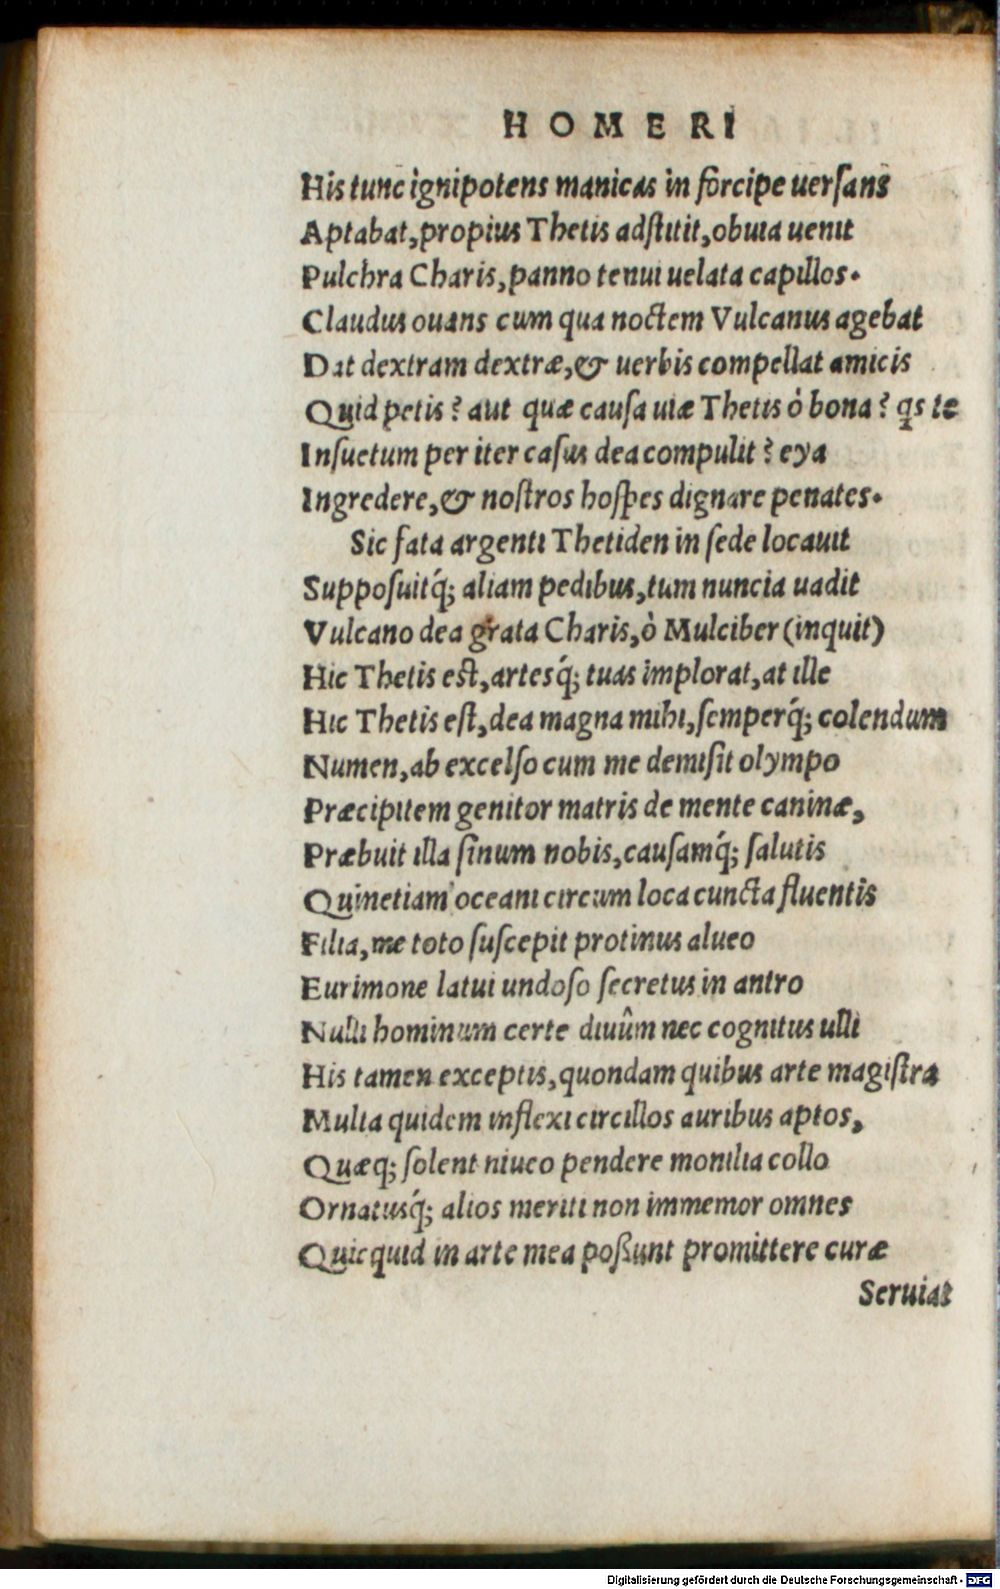 HOMERI
His tunc ignipotens manicas in forcipe uersans
Aptabat, propius Thetis adstitit, obuia uenit
Pulchra Charis, panno tenui uelata capillos.
Claudus ouans cum qua noctem Vulcanus agebat
Dat dextram dextræ, & uerbis compellat amicis
Quid petis? aut quæ causa uiæ Thetis ò bona? qs te
Insuetum per iter casus dea compulit? eya
Ingredere, & nostros hospes dignare penates.
Sic fata argenti Thetiden in sede locauit
Supposuitq́; aliam pedibus, tum nuncia uadit
Vulcano dea grata Charis, ò Mulciber (inquit)
Hic Thetis est, artesq́; tuas implorat, at ille
Hic Thetis est, dea magna mihi, semperq́; colendum
Numen, ab excelso cum me demisit olympo
Præcipitem genitor matris de mente caninæ,
Præbuit illa sinum nobis, causamq́; salutis
Quinetiam oceani circum loca cuncta fluentis
Filia, me toto suscepit protinus alueo
Eurimone latui undoso secretus in antro
Nulli hominum certe diuûm nec cognitus ulli
His tamen exceptis, quondam quibus arte magistra
Multa quidem inflexi circillos auribus aptos,
Quæq; solent niueo pendere monilia collo
Ornatusq́; alios meriti non immemor omnes
Quicquid in arte mea possunt promittere curæ
Seruiat
Digitalisierung gefördert durch die Deutsche Forschungsgemeinschaft - DFG